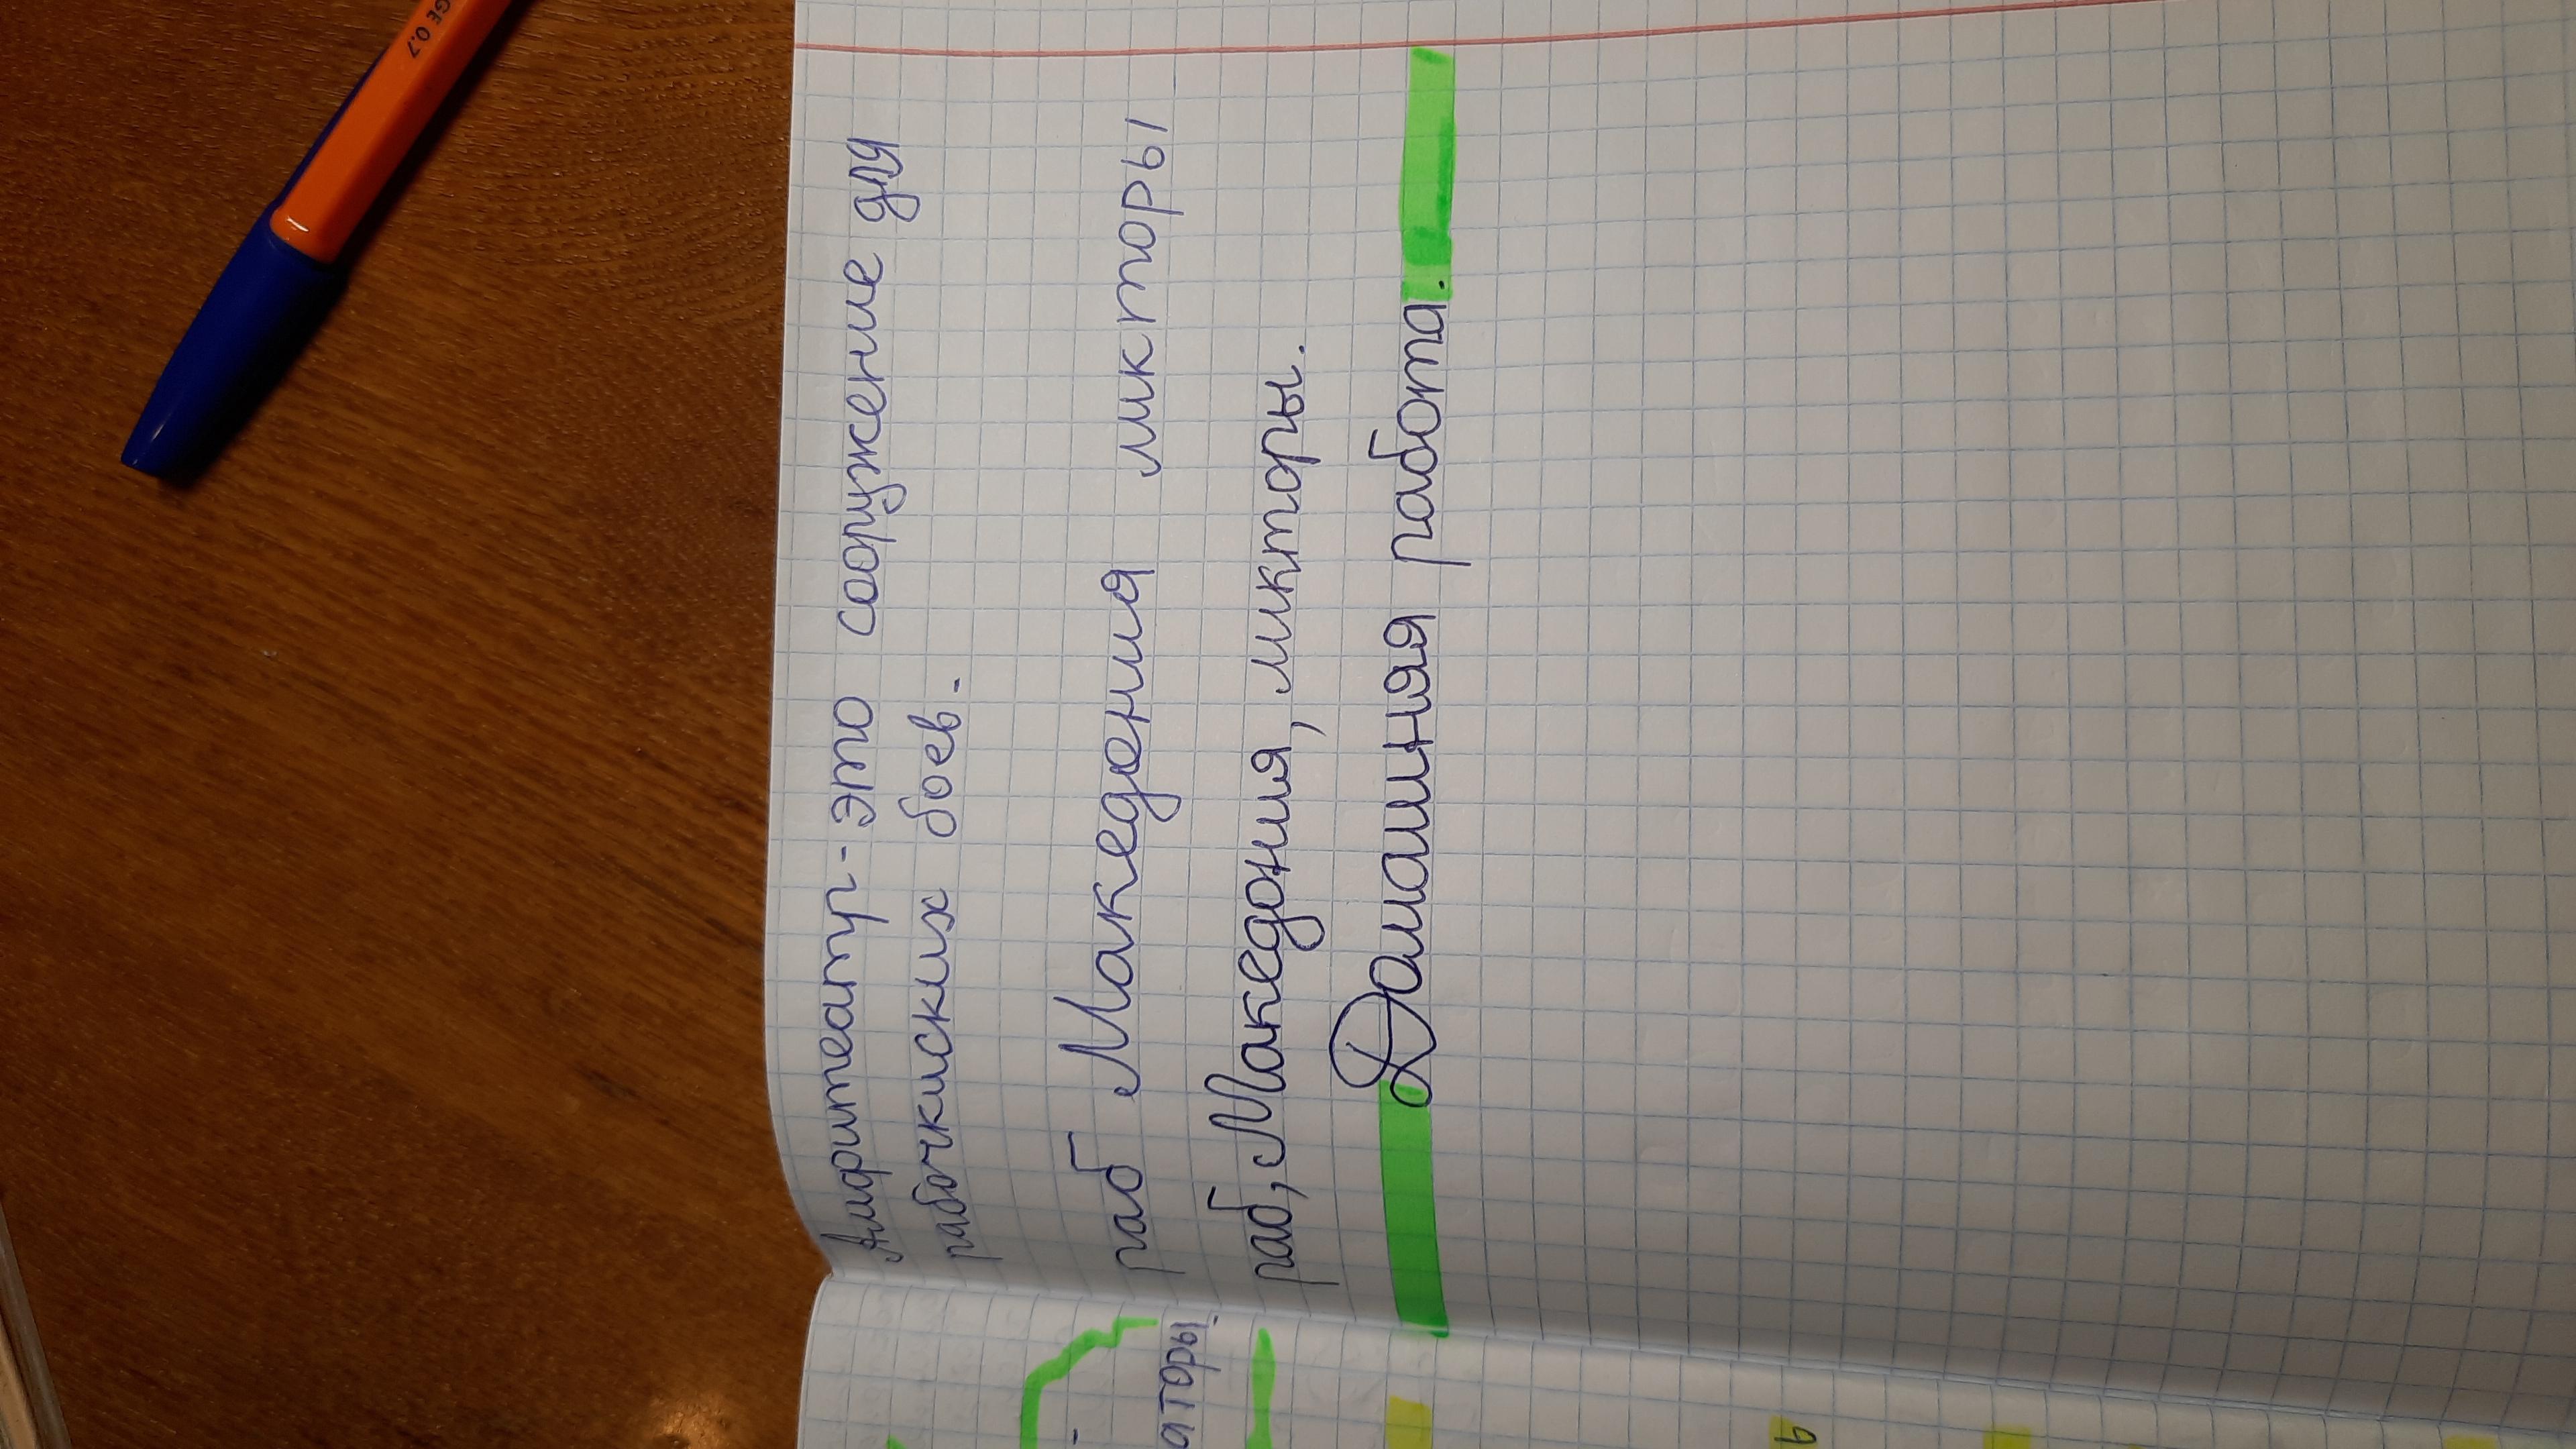 Амфитеатр - это сооружение для
рабочкиских боев.
раб Македения ликторы
раб, Македония, ликторы.
Домашняя работа.
аторы
GE 0.7